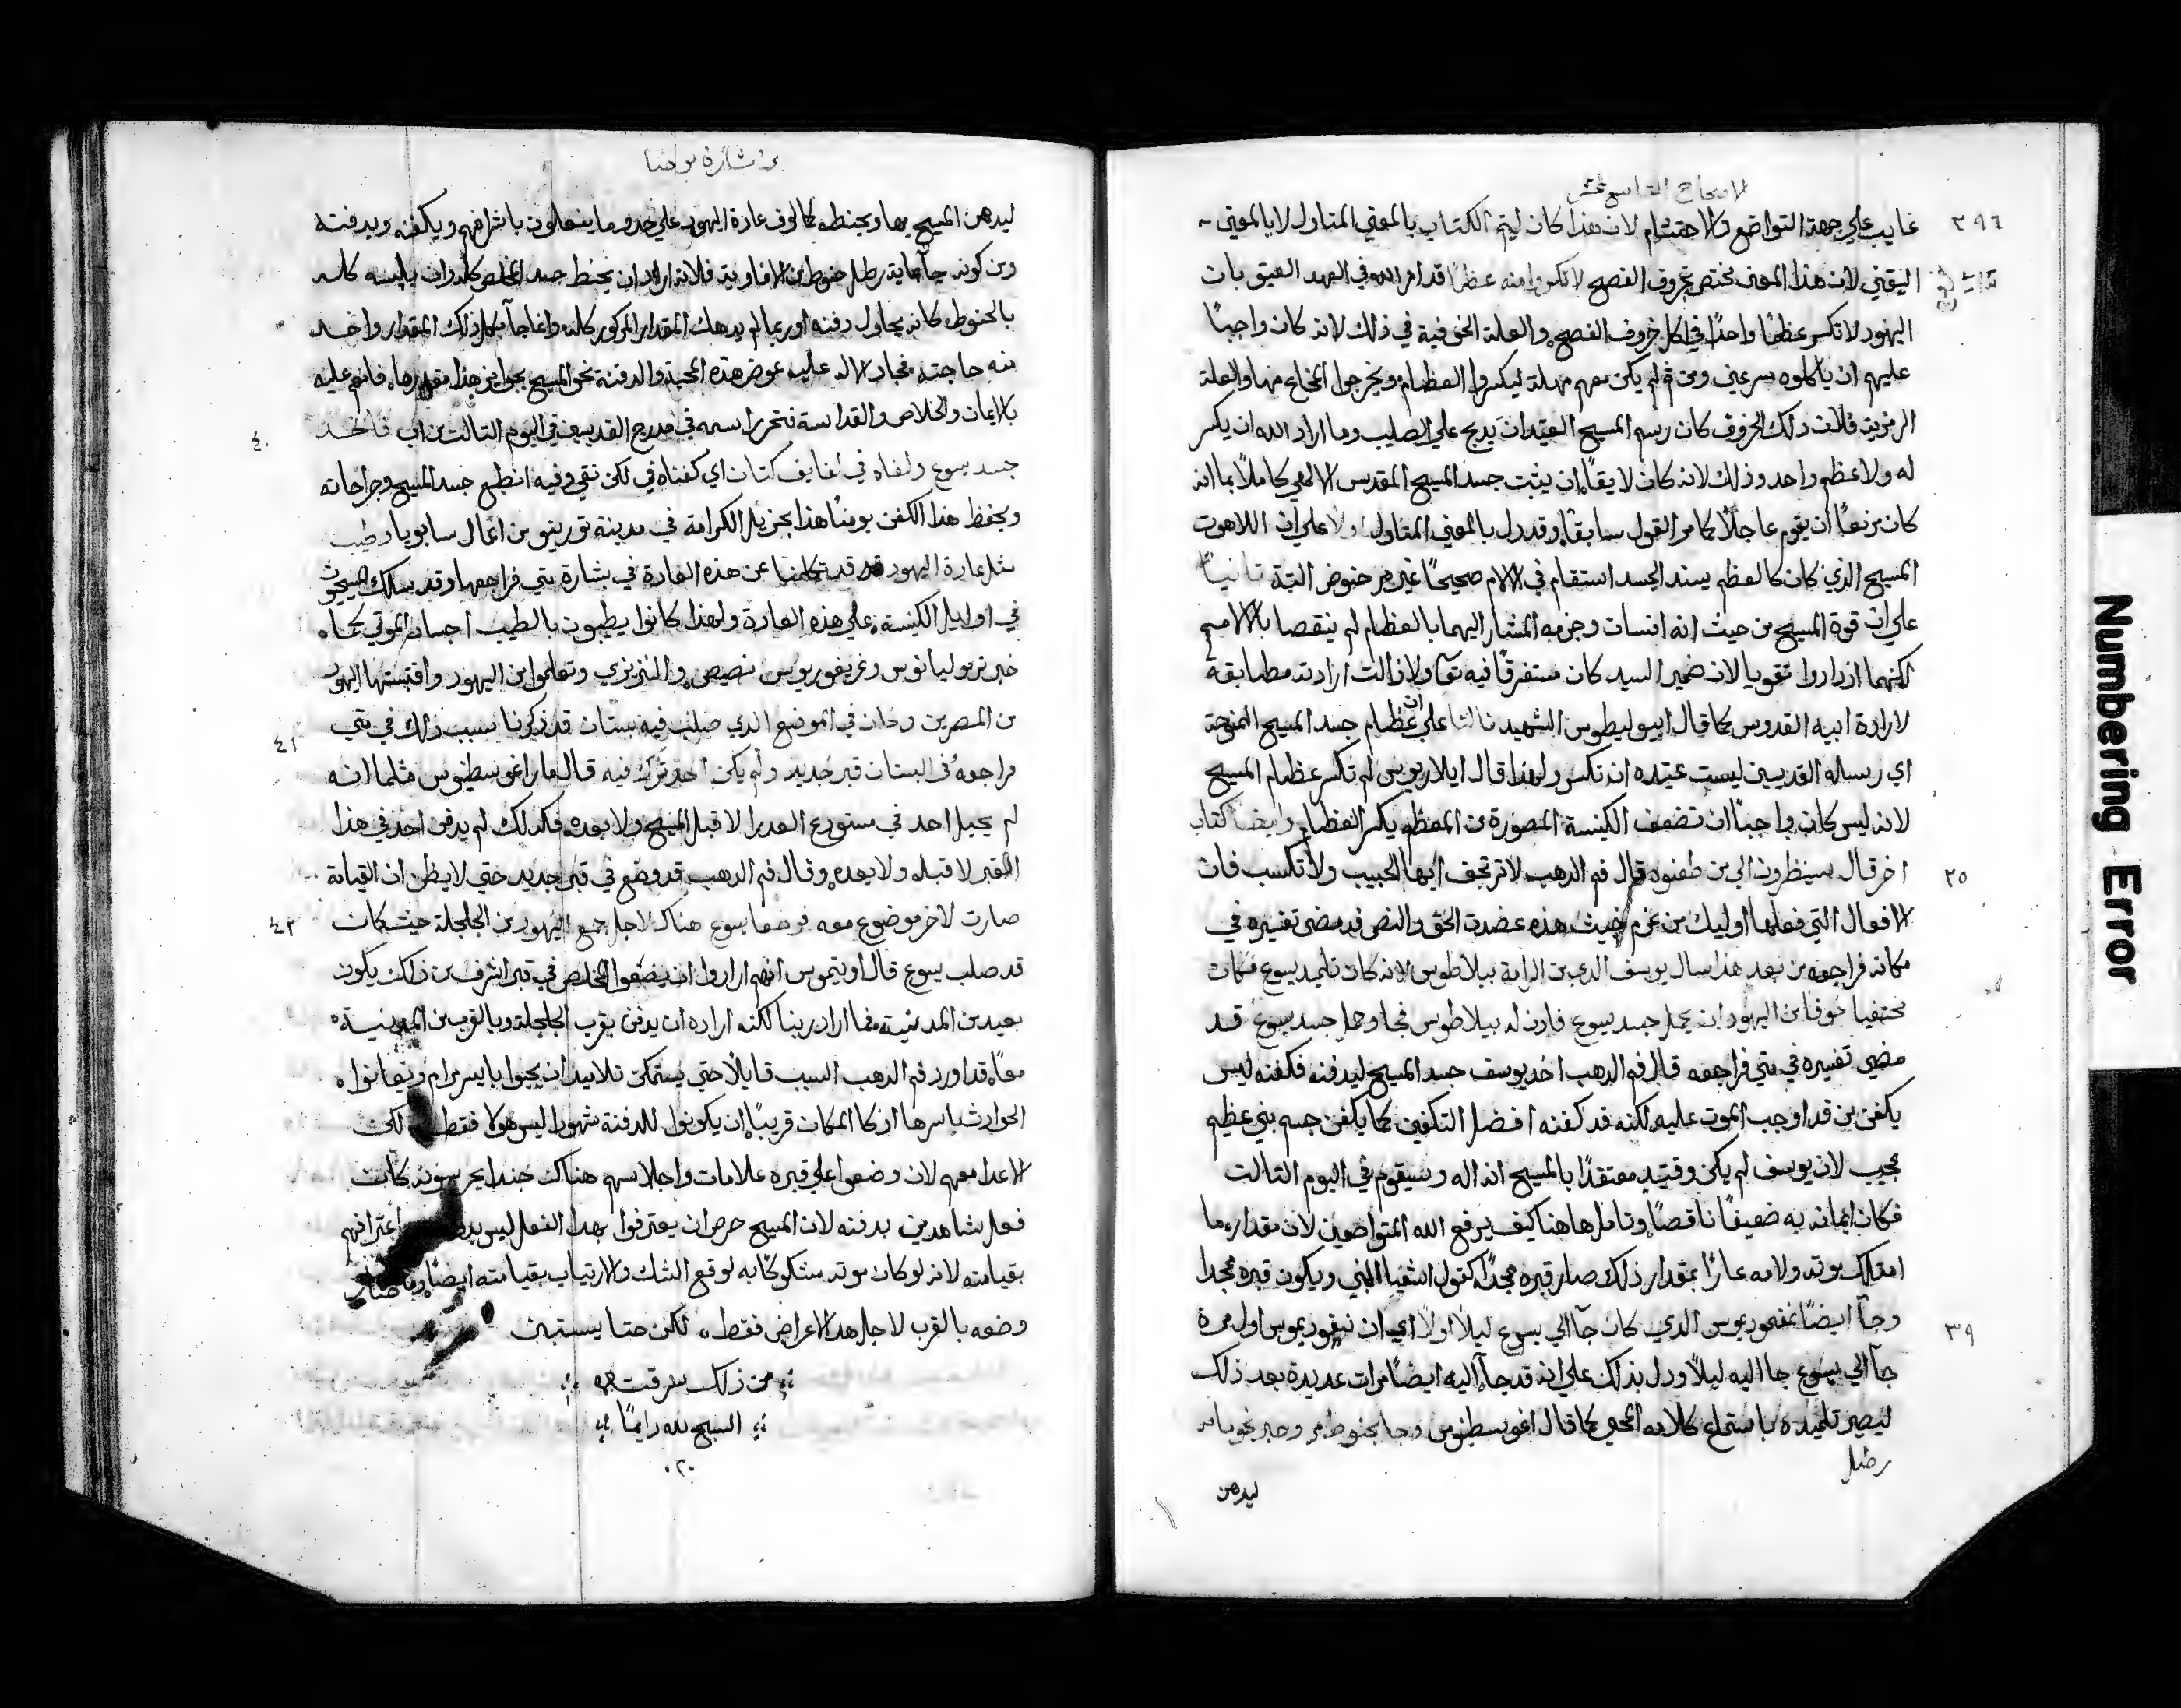 الاصحاح التاسع عشر
٢٩٦
غايب علي جهة التواضع والاحتشام لان هذا كان ليتم الكتاب بالمعني المتاول لا بالمعني
اليقني لان هذا المعني مختص بخروف الفصح لا تكسروا منه عظمًا قد امر الله في العهد العتيق بان
اليهود لا تكسر عظمًا واحدًا في اكل خروف الفصح والعلة الخوفية في ذلك لانه كان واجبًا
عليهم ان ياكلوه مسرعين ومن ثم لم يكن معهم مهلة ليكسروا العظام ويخرجوا المخاع منها والعلة
الرمزية فلان ذلك الخروف كان رسم المسيح العتيد ان يدبح علي الصليب وما اراد الله ان يكسر
له ولا عظم واحد وذلك لانه كان لايقًا ان يثبت جسد المسيح المقدس الالهي كاملًا بما انه
كان مزمعًا ان يقوم عاجلًا كما مر القول سابقًا وقد دل بالمعني المتاول اولا علي ان اللاهوت
المسيح الذي كان كالعظم يسند الجسد استقام في الالام صحيحًا غير مرضوض البتة ثانيًا
علي ان قوة المسيح من حيث انه انسان وحزمه المشار اليهما بالعظام لم ينقصا بالالام
لكنهما ازدادوا تقويا لان ضمير السيد كان مستغرقًا فيه تعالى ولا زالت ارادته مطابقة
لارادة ابيه القدوس كما قال ايبوليطوس الشهيد ثالثا علي ان عظام جسد المسيح
اي رسله القديسين ليست عتيده ان تكسر ولهذا قال ايلاريوس لم تكسر عظام المسيح
لانه ليس كان واجبًا ان تضعف الكنيسة المصورة من العظم بكسر العظام وايضًا كتاب
٢٥
اخر قال سينظرون الي من طعنوه قال فم الدهب لا ترتجف ايها الحبيب ولا تكتسب فان
الافعال التي فعلها اوليك من عزم خبيث هذه عضدت الحق والنص قد مضى تفسيره في
مكانه فراجعه من بعد هذا سال يوسف الدي من الرامة بيلاطوس لانه كان تلميد يسوع فكان
مختفيا خوفا من اليهود ان يحمل جسد يسوع فادن له بيلاطوس فجا وحمل جسد يسوع قد
مضي تفسيره في متي فراجعه قال فم الدهب اخد يوسف جسد المسيح ليدفنه فكفنه ليس
يكفن من قد اوجب الموت عليه لكنه قد كفنه افضل التكفين كما يكفن جسم نبي عظيم
عجيب لان يوسف لم يكن وقتيد معتقدًا بالمسيح انه اله وسيقوم في اليوم التالت
فكان ايمانه به ضعيفًا ناقصًا وتامل هاهنا كيف يرفع الله المتواضعين لان مقدار ما
امتلك موته والامه عارًا بمقدار ذلك صار قبره مجدًا كقول اشعيا النبي ويكون قبره مجدا
٣٩
وجا ايضًا نيقوديموس الدي كان جا الي يسوع ليلًا اولًا اي ان نيقوديموس اول مرة
جا الي يسوع جا اليه ليلًا ودل بذلك علي انه قد جا اليه ايضًا مرات عديدة بعد ذلك
ليصير تلميده باستماع كلامه المحيي كما قال اغوسطينوس وجا بحنوط مر وصبر نحو ماية
رطل
ليدهن
بشارة يوحنا
ليدهن المسيح بها ويحنطه كمالوف عادة اليهود علي حدو ما يفعلون باشرافهم ويكفنه ويدفنه
ومن كونه جا بماية رطل حنوط من الافاوية فلانه اراد ان يحنط جسد المخلص كله وان يلبسه كله
بالحنوط كانه يحاول دفنه او ربما لم يدهن المقدار المذكور كله وانما جا بكل ذلك المقدار واخد
منه حاجته فجاد الاله عليه عوض هذه المحبة والدفنة نحو المسيح بجوايز هذا مقدارها فانعم عليه
بالايمان والخلاص والقداسة فتحرر اسمه في مدرج القديسين في اليوم التالت من اب فاخد
٤٠
جسد يسوع ولفاه في لفايف كتان اي كفناه في كفن نقي وفيه انطبع جسد المسيح وجراحاته
ويحفظ هذا الكفن يومنًا هذا بجزيل الكرامة في مدينة تورينو من اعمال سابويا وطيب
مثل عادة اليهود قد تكلمنا عن هذه العادة في بشارة متي فراجعها وقد سلك المسيحيون
في اوايل الكنيسة علي هذه العادة ولهذا كانوا يطيبون بالطيب اجساد الموتي كما
خبر ترتوليانوس وغريغوريوس نصيص والنزينزي وتعلموا من اليهود واقتبستها اليهود
من المصرين وكان في الموضع الدي صلب فيه بستان قد ذكرنا سبب ذلك في متي
٤١
فراجعه وفي البستان قبر جديد ولم يكن احد ترك فيه قال مار اغوسطينوس مثلما انه
لم يحبل احد في مستودع العدرا لا قبل المسيح ولا بعده فكدلك لم يدفن احد في هذا
القبر لا قبله ولا بعده وقال فم الدهب قد وضع في قبر جديد حتي لا يظن ان القيامة
صارت لاخر موضوع معه فوضعا يسوع هناك لاجل جمع اليهود من الجلجلة حيث كان
٤٢
قد صلب يسوع قال اوتيميوس انهم ارادوا ان يضعوا المخلص في قبر اشرف من ذلك يكون
بعيد من المدينة فما اراد ربنا لكنه اراده ان يدفن بقرب الجلجلة وبالقرب من المدينة
معًا قد اورد فم الدهب السبب قايلًا حتي يستمكن تلاميده ان يجوا بايسر مرام ويعاينوا
الحوادث باسرها اذ كان المكان قريبًا ان يكونوا للدفنة شهودا ليس هولا فقط لكن
الاعدا معهم لان وضعوا علي قبره علامات واجلاسهم هناك جندا يحرسونه كانت
فعل شاهدين بدفنه لان المسيح حرص ان يعترفوا بهدا الفعل ليس اعترافهم
بقيامته لانه لو كان موته مشكوكًا به لوقع الشك والارتياب بقيامته ايضًا وما صار
وضعه بالقرب لاجل هدا الاعراض فقط لكن حتا يستبين
من ذلك سرقته
السبح لله دايمًا